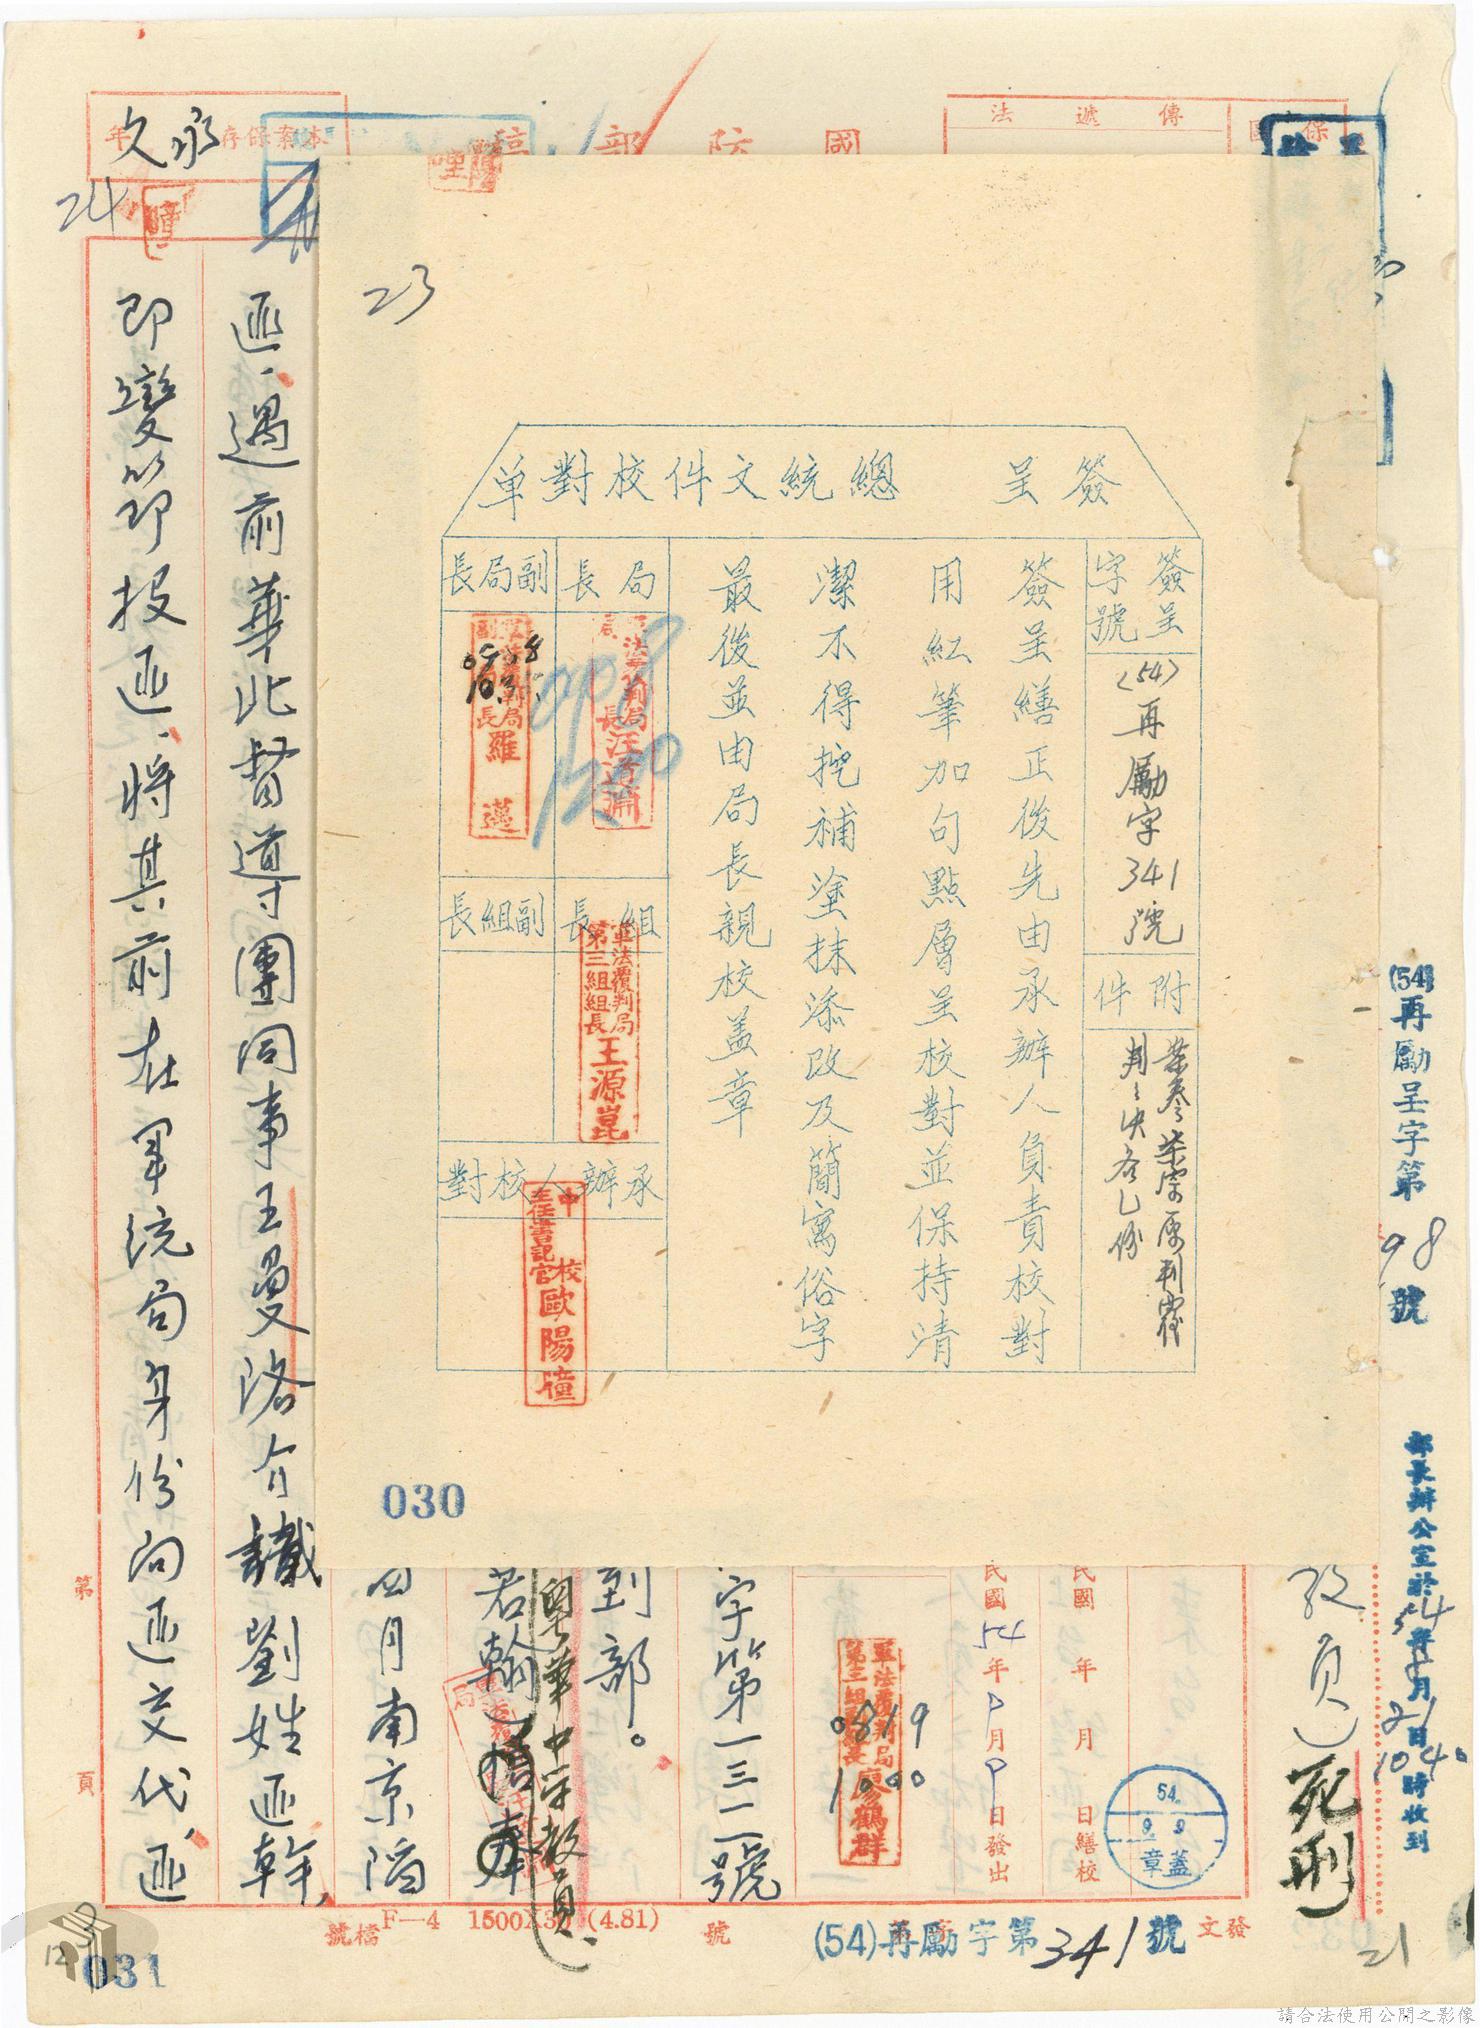 簽呈 總統文件校對单
簽呈字號
(54)再勵字341號
附件
簽呈繕正後先由承辦人負責校對
用紅筆加句點層呈校對並保持清
潔不得挖補塗抹添改及簡寫俗字
最後並由局長親校盖章
局長
副局長
組長
副組長
承辦人校對
軍法覆判局副局長羅邁
05 08
10.3
098
1200
軍法覆判局第三組組長王源崑
中校主任書記官歐陽
23
030
國防部稿
傳遞法
保
本案保存年
永久
24
(54)再勵呈字第98號
部長辦公室於54年 月21日1040時收到
教員)死刑
民國 年 月 日繕校
民國54年9月9日發出
54. 9. 9 蓋章
軍法覆判局第三組 廖鶴群
0819
1000
字第一三一二號
到部。
粵華中學教員、
若翰
四月南京滔
匪、遇前華北督導團同事王曼珞介識劉姓匪幹、
即變節投匪、將其前在軍統局身份向匪交代、匪
第 頁
檔號
F—4 1500X30 (4.81)
號
(54)再勵字第341號
發文
21
12
031
請合法使用公開之影像